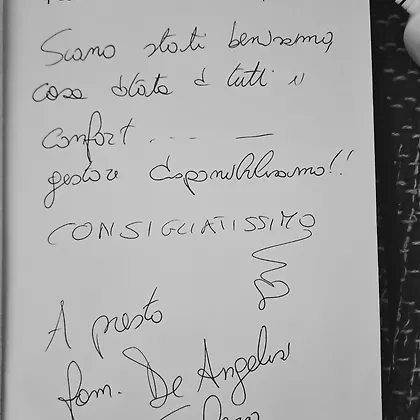 Siamo stati benissimo,
casa dotata di tutti i
confort .... —
gestore disponibilissimo!!
CONSIGLIATISSIMO
A presto
fam. De Angelis